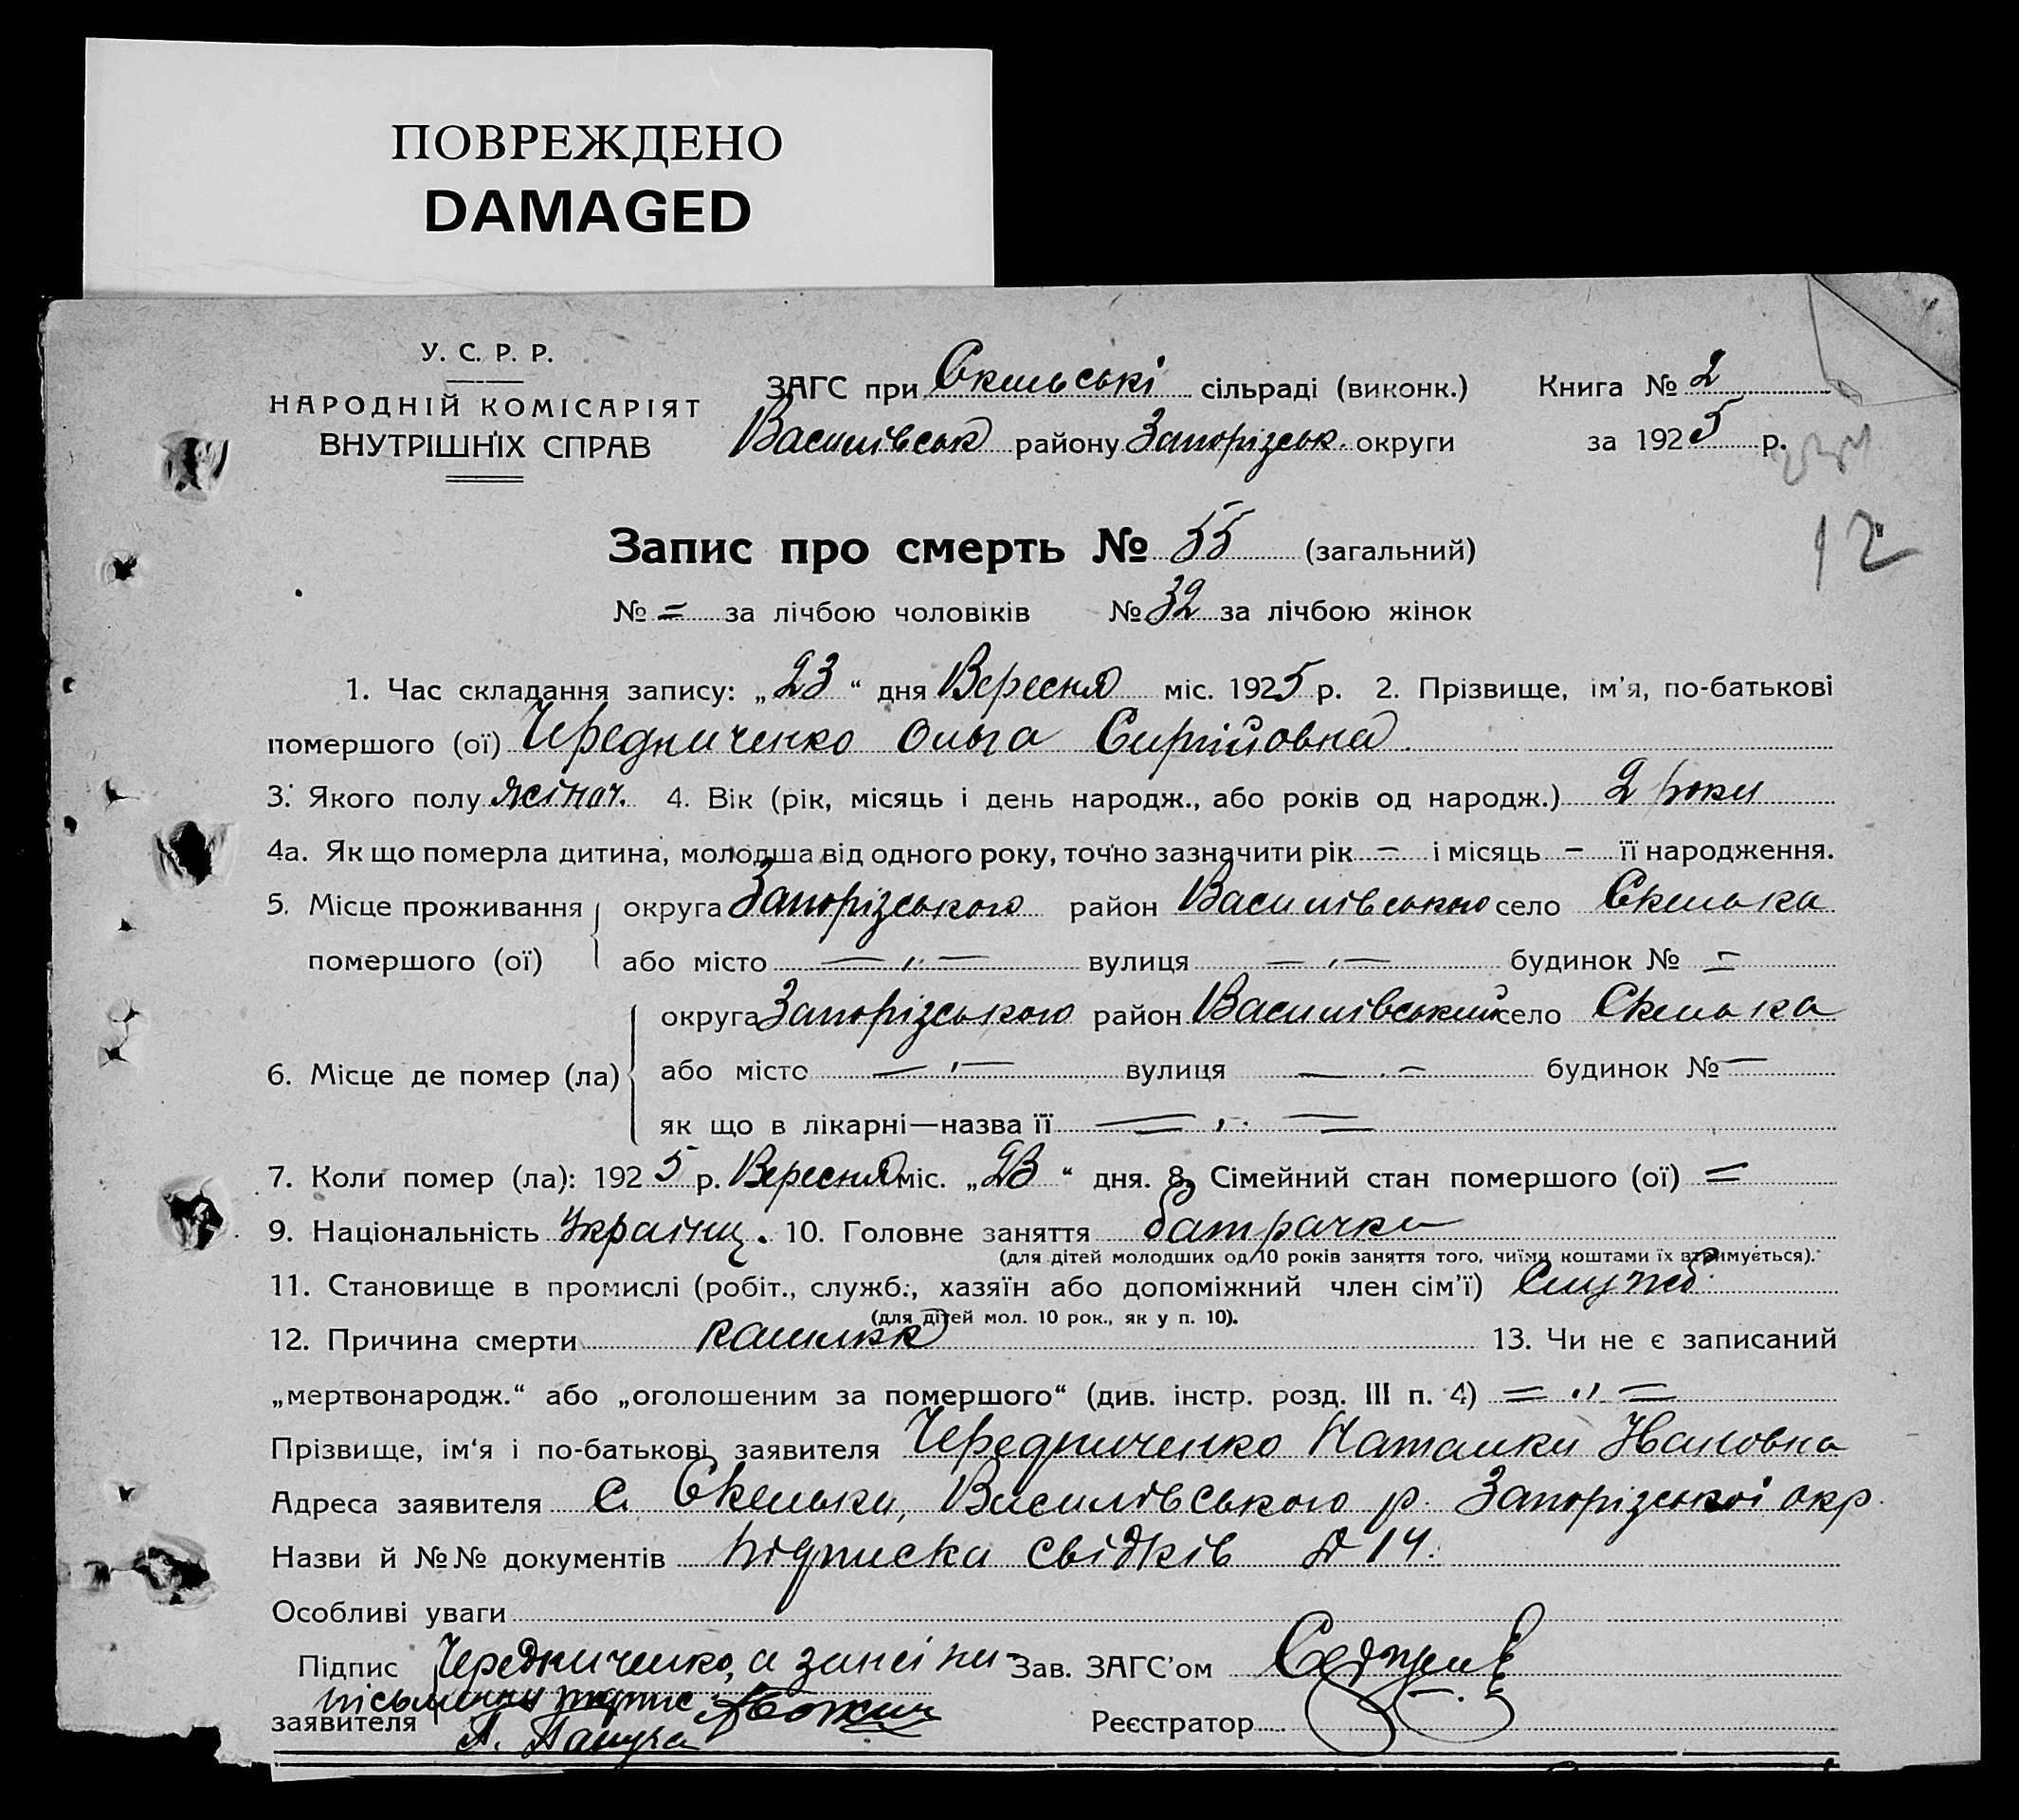 ПОВРЕЖДЕНО
DAMAGED
У. С. Р. Р.
НАРОДНІЙ КОМІСАРІЯТ
ВНУТРІШНІХ СПРАВ
ЗАГС при Скельські сільраді (виконк.) Книга № 2
Василівськ району Запорізськ. округи за 1925 р.
12
Запис про смерть № 55 (загальний)
№ = за лічбою чоловіків № 32 за лічбою жінок
1. Час складання запису: „23“ дня Вересня міс. 1925 р. 2. Прізвище, ім'я, по-батькові
помершого (ої) Чередниченко Ольга Сиргійовна
3. Якого полу жіноч. 4. Вік (рік, місяць і день народж., або років од народж.) 2 роки
4а. Як що померла дитина, молодша від одного року, точно зазначити рік – і місяць – її народження.
5. Місце проживання округа Запорізського район Василівського село Скелька
помершого (ої) або місто — „ — вулиця — „ — будинок № =
округа Запорізського район Василівський село Скелька
6. Місце де помер (ла) або місто — „ — вулиця — „ — будинок № —
як що в лікарні—назва її = „ =
7. Коли помер (ла): 1925 р. Вересня міс. „23“ дня. 8. Сімейний стан помершого (ої) =
9. Національність Україн. 10. Головне заняття батрачка
(для дітей молодших од 10 років заняття того, чиїми коштами їх втримується).
11. Становище в промислі (робіт., служб., хазяїн або допоміжний член сім'ї) Служб.
(для дітей мол. 10 рок., як у п. 10).
12. Причина смерти кашлюк 13. Чи не є записаний
„мертвонародж.“ або „оголошеним за помершого“ (див. інстр. розд. III п. 4) = „ =
Прізвище, ім'я і по-батькові заявителя Чередниченко Наталка Ивановна
Адреса заявителя с. Скелька, Василівського р. Запорізської окр.
Назви й №№ документів підписка свідків № 14.
Особливі уваги
Підпис Чередниченко, а за неї не- Зав. ЗАГС'ом
письменну підпис
заявителя Реєстратор